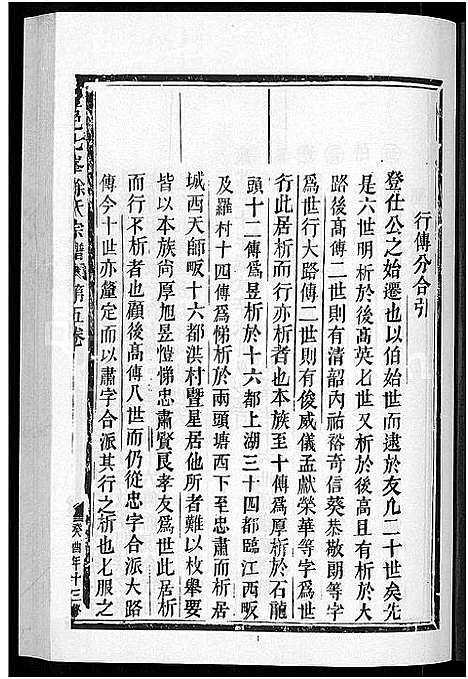 行傳分合引
登仕公之始遷也以伯始世而逮於友凡二十世矣先
是六世明析於後高英七世又析於後高且有析於大
路後高傳二世則有清韶内祐裕奇信葵恭敬朗等字
爲世行大路傳二世則有俊威儀孟獻榮華等字爲世
行此居析而行亦析者也本族至十傳爲厚析於石龍
頭十二傳爲昱析於十六都上湖三十四都臨江西畈
及羅村十四傳爲悌析於兩頭塘西下至忠肅而析居
城西天師畈十六都洪村暨星居他所者難以枚舉要
皆以本族尚厚旭昱愷悌忠肅賢良孝友爲世此居析
而行不析者也顧後高傳八世而仍從忠字合派大路
傳今十世亦釐定而以肅字合派其行之析也七服之
邑七峯徐氏宗譜 第五卷
癸酉年十三修